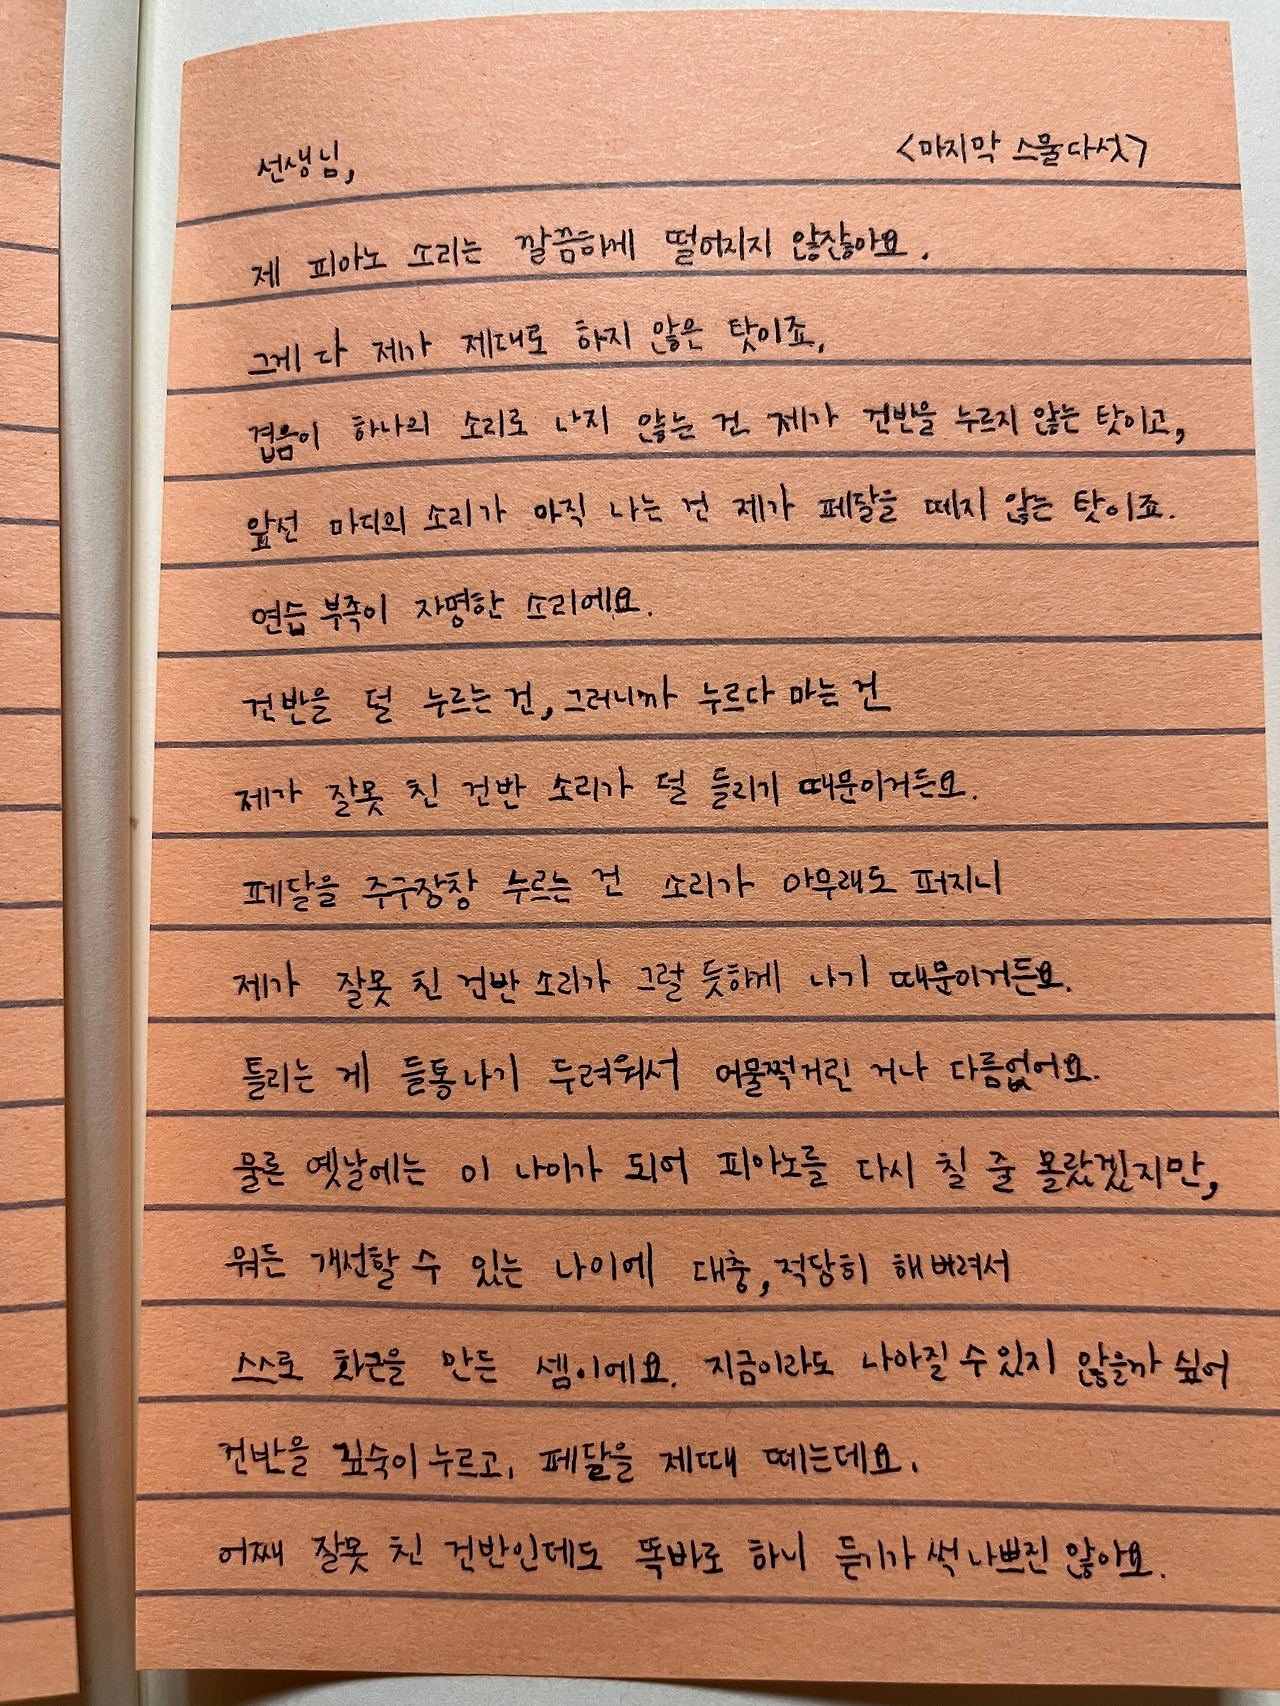 선생님, <마지막 스물다섯>
제 피아노 소리는 깔끔하게 떨어지지 않잖아요.
그게 다 제가 제대로 하지 않은 탓이죠,
겹음이 하나의 소리로 나지 않는 건 제가 건반을 누르지 않는 탓이고,
앞선 마디의 소리가 아직 나는 건 제가 페달을 떼지 않는 탓이죠.
연습 부족이 자명한 소리에요.
건반을 덜 누르는 건, 그러니까 누르다 마는 건
제가 잘못 친 건반 소리가 덜 들리기 때문이거든요.
페달을 주구장창 누르는 건 소리가 아무래도 퍼지니
제가 잘못 친 건반 소리가 그럴 듯하게 나기 때문이거든요.
틀리는 게 들통나기 두려워서 어물쩍거린 거나 다름없어요.
물론 옛날에는 이 나이가 되어 피아노를 다시 칠 줄 몰랐겠지만,
뭐든 개선할 수 있는 나이에 대충, 적당히 해버려서
스스로 화근을 만든 셈이에요. 지금이라도 나아질 수 있지 않을까 싶어
건반을 깊숙이 누르고, 페달을 제때 떼는데요.
어째 잘못 친 건반인데도 똑바로 하니 듣기가 썩 나쁘진 않아요.